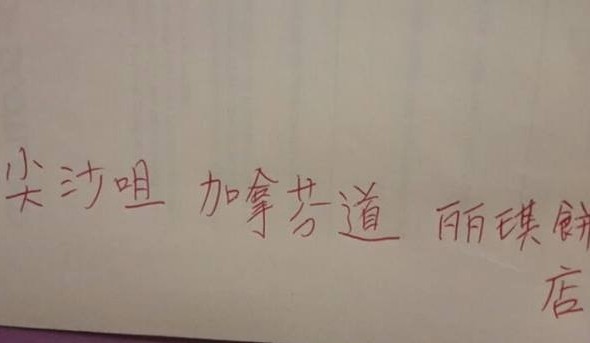 尖沙咀 加拿芬道 丽琪餅
店